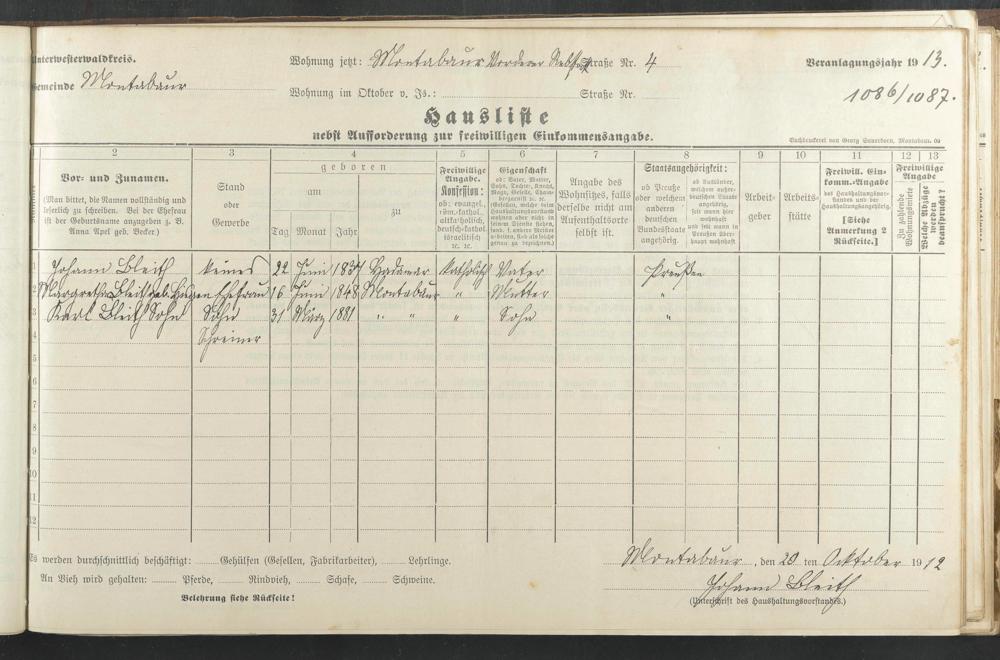 Unterwesterwaldkreis.
Wohnung jetzt: Montabaur Vorderer Straße Nr. 4
Veranlagungsjahr 1913.
Gemeinde Montabaur
Wohnung im Oktober v. Js.: Straße Nr.
1086/1087.
Hausliste
nebst Aufforderung zur freiwilligen Einkommensangabe.
Buchdruckerei von Georg Sauerborn, Montabaur.
1 2 3 4 5 6 7 8 9 10 11 12 13
Vor- und Zunamen.
(Man bittet, die Namen vollständig und
leserlich zu schreiben. Bei der Ehefrau
ist der Geburtsname anzugeben z. B.
Anna Apel geb. Becker.)
Stand
oder
Gewerbe
geboren
am
zu
Tag Monat Jahr
Freiwillige
Angabe.
Konfession:
ob: evangel.,
röm.-kathol.,
altkatholisch,
deutsch-kathol.
israelitisch
ꝛc. ꝛc.
Eigenschaft
ob: Vater, Mutter,
Sohn, Tochter, Knecht,
Magd, Geselle,
Angabe des
Wohnsitzes, falls
derselbe nicht am
Aufenthaltsorte
selbst ist.
Staatsangehörigkeit:
ob Preuße
oder welchem
anderen
deutschen
Bundesstaate
angehörig.
ob Ausländer,
welchem außer-
deutschen Staate
angehörig,
seit wann hier
wohnhaft und
seit wann in
Preußen über-
haupt wohnhaft
Arbeit-
geber
Arbeits-
stätte
Freiwill. Ein-
komm.-Angabe
des Haushaltungsvor-
standes und der
Haushaltungsangehörig.
[Siehe
Anmerkung 2
Rückseite.]
Freiwillige
Angabe
Zu zahlende
Wohnungsmiete
Welche Abzüge
werden
beansprucht?
1 Johann Bleith keines 22 Juni 1837 Hadamar katholisch Vater Preußen
2 Margaretha Bleith geb. Ehefrau 16 Juni 1848 Montabaur " Mutter "
3 Karl Bleith Sohn Sohn 31 März 1881 " " " Sohn "
4 Schreiner
5
6
7
8
9
10
11
12
Es werden durchschnittlich beschäftigt: Gehülfen (Gesellen, Fabrikarbeiter), Lehrlinge.
An Vieh wird gehalten: Pferde, Rindvieh, Schafe, Schweine.
Belehrung siehe Rückseite!
Montabaur, den 20 ten Ocktober 1912
Johann Bleith
(Unterschrift des Haushaltungsvorstandes.)